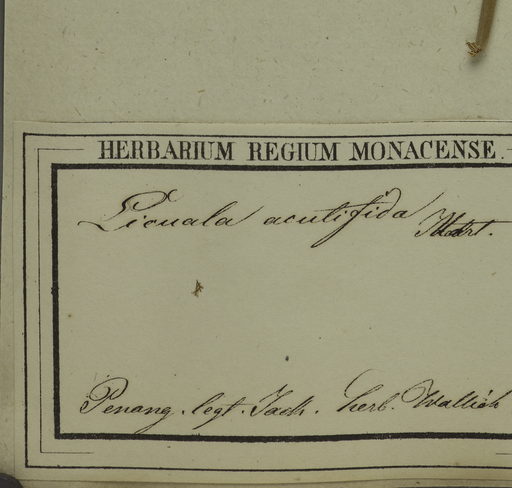 HERBARIUM REGIUM MONACENSE.
Licuala acutifida Mart.
Penang. legt. Jack. herb. Wallich